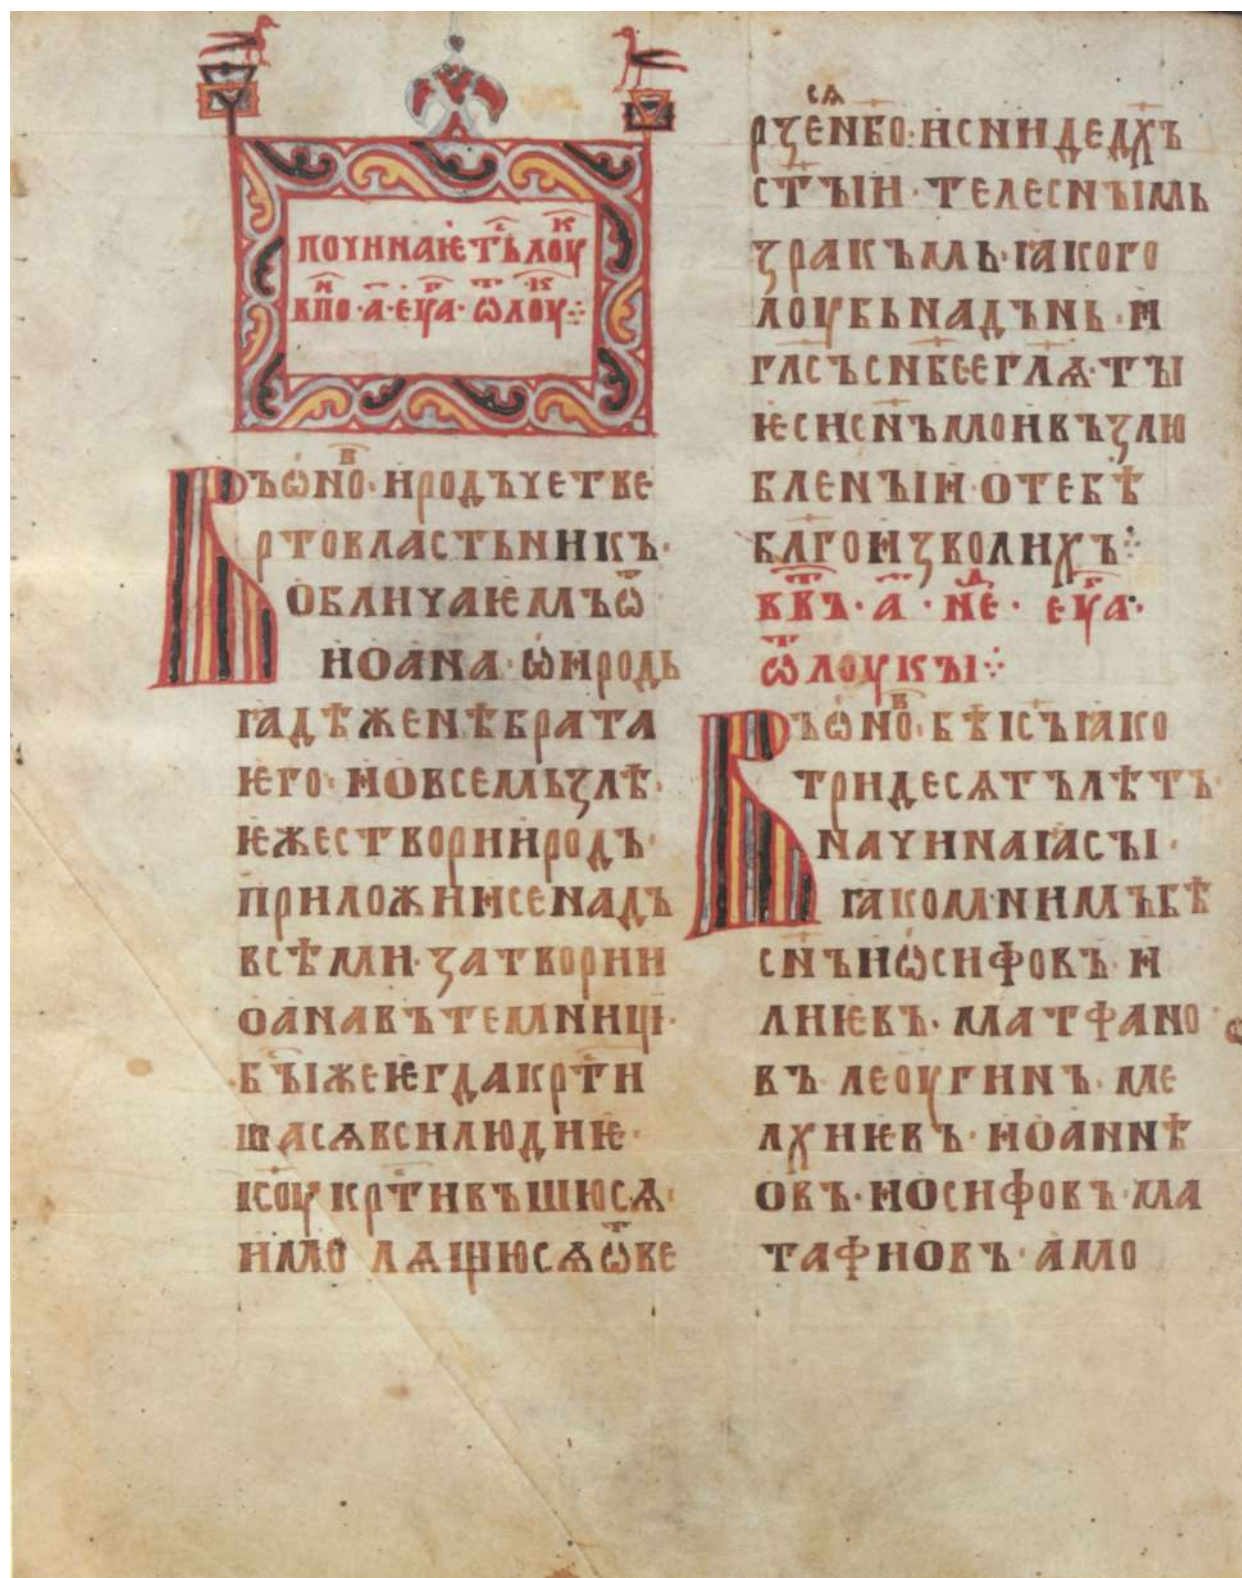 починаѥть лоу к
в пⷩ҇о · а҃ · еуⷢ҇а · ѿ лоуⷦ҇ ⁘
Въ ѡ́ноⷡ҇ · иродъ четве
ртовластьникъ ·
обличаѥмъ ѿ
иоана · ѡ иродь
ꙗдѣ женѣ брата
ѥго · и о всемь ꙁлѣ ·
ѥже створи иродъ ·
приложи и се надъ
всѣми · ꙁатвори и
оана въ темници ·
бы҃ же ѥгда крт҃и
ша сѧ вси людиѥ ·
і҃соу крт҃ивъшю сѧ ·
и мо лѧщю сѧ ѿве
рꙁе сѧ нб҃о · и сниде дх҃ъ
ст҃ъіи · телеснъімь
ꙁракъмь · ꙗко го
лоубь на дънь · и
гл҃съ с нб҃се е гл҃ѧ · тъі
ѥси сн҃ъ мои въꙁлю
бленъіи о тебѣ
бл҃гоиꙁволихъ ⁘
вⷮ въ · а҃ · неⷣ · еуⷢ҇а ·
ѿ лоукъі ⁘
Въ ѡ́ноⷡ҇ · бѣ іс҃ъ ꙗко
тридесѧтъ лѣтъ ·
начинаꙗ съі ·
ꙗко мнимъ бѣ
сн҃ъ иѡсифовъ · и
лиѥвъ · матфано
въ леоугинъ · ме
лхиѥвъ · иоаннѣ
овъ · иосифовъ · ма
тафиовъ · амо